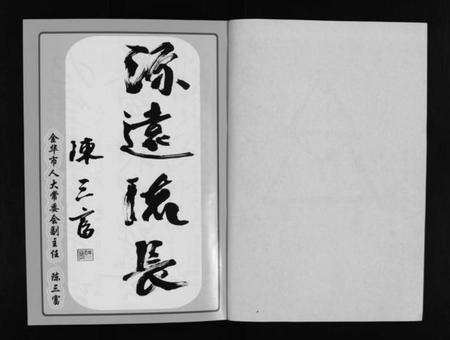 源遠流長
陳三富
金华市人大常委会副主任 陈三富